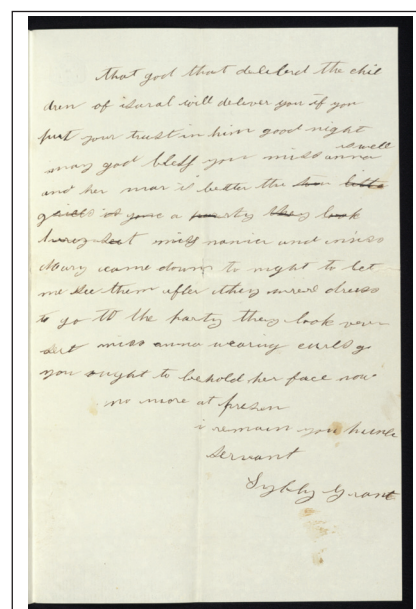 that god that deleberd the chil
dren of isaral will deliver you if you
put your trust in him good night
is well
may god bless you miss anna
and her mar is better the
a
miss nannie and miss
Mary came down to night to let
me see them after they were dress
to go to the party they look very
miss anna wearing curls
you ought to behold her face now
no more at presen
i remain you humle
servant
Sybby Grant